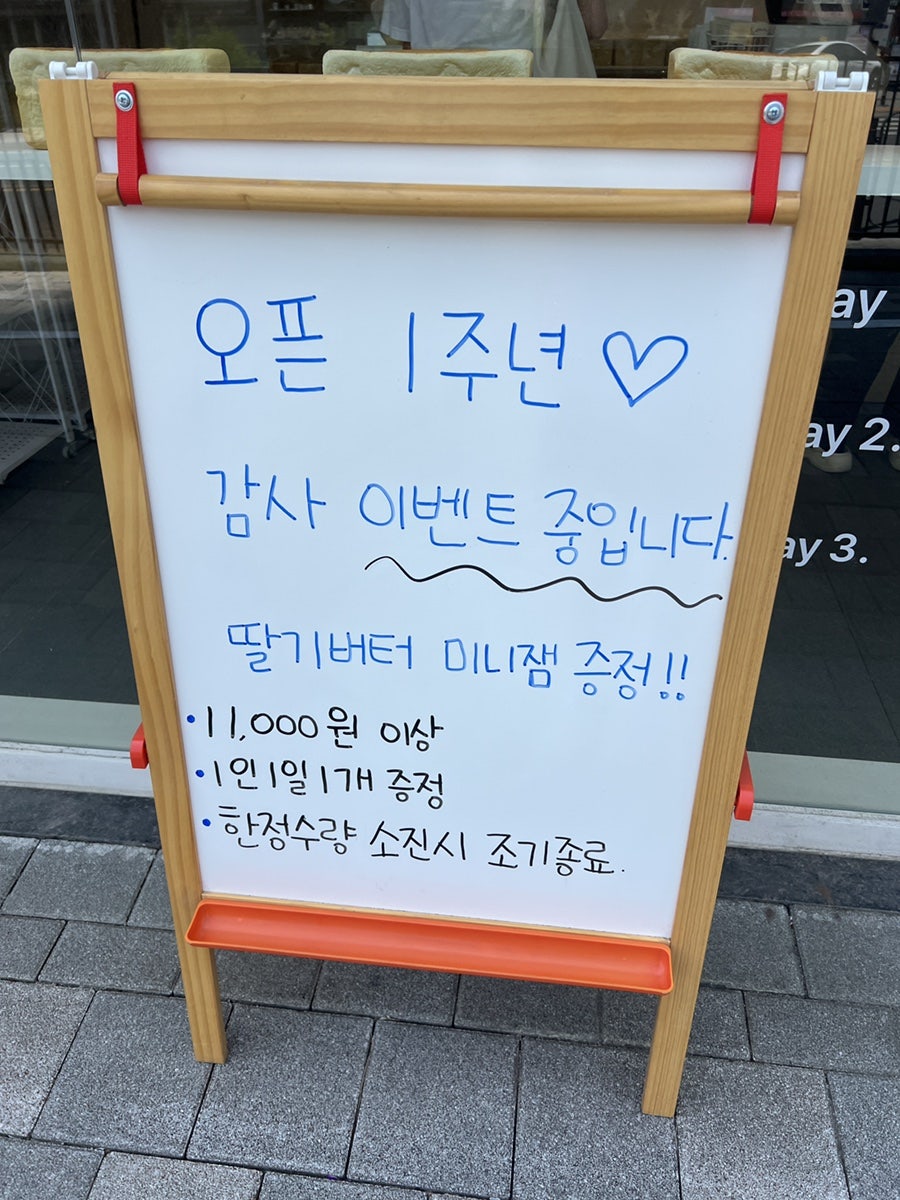 오픈 1주년 ♡
감사 이벤트 중입니다.
딸기버터 미니잼 증정!!
• 11,000원 이상
• 1인 1일 1개 증정
• 한정수량 소진시 조기종료.
ay
ay 2.
ay 3.